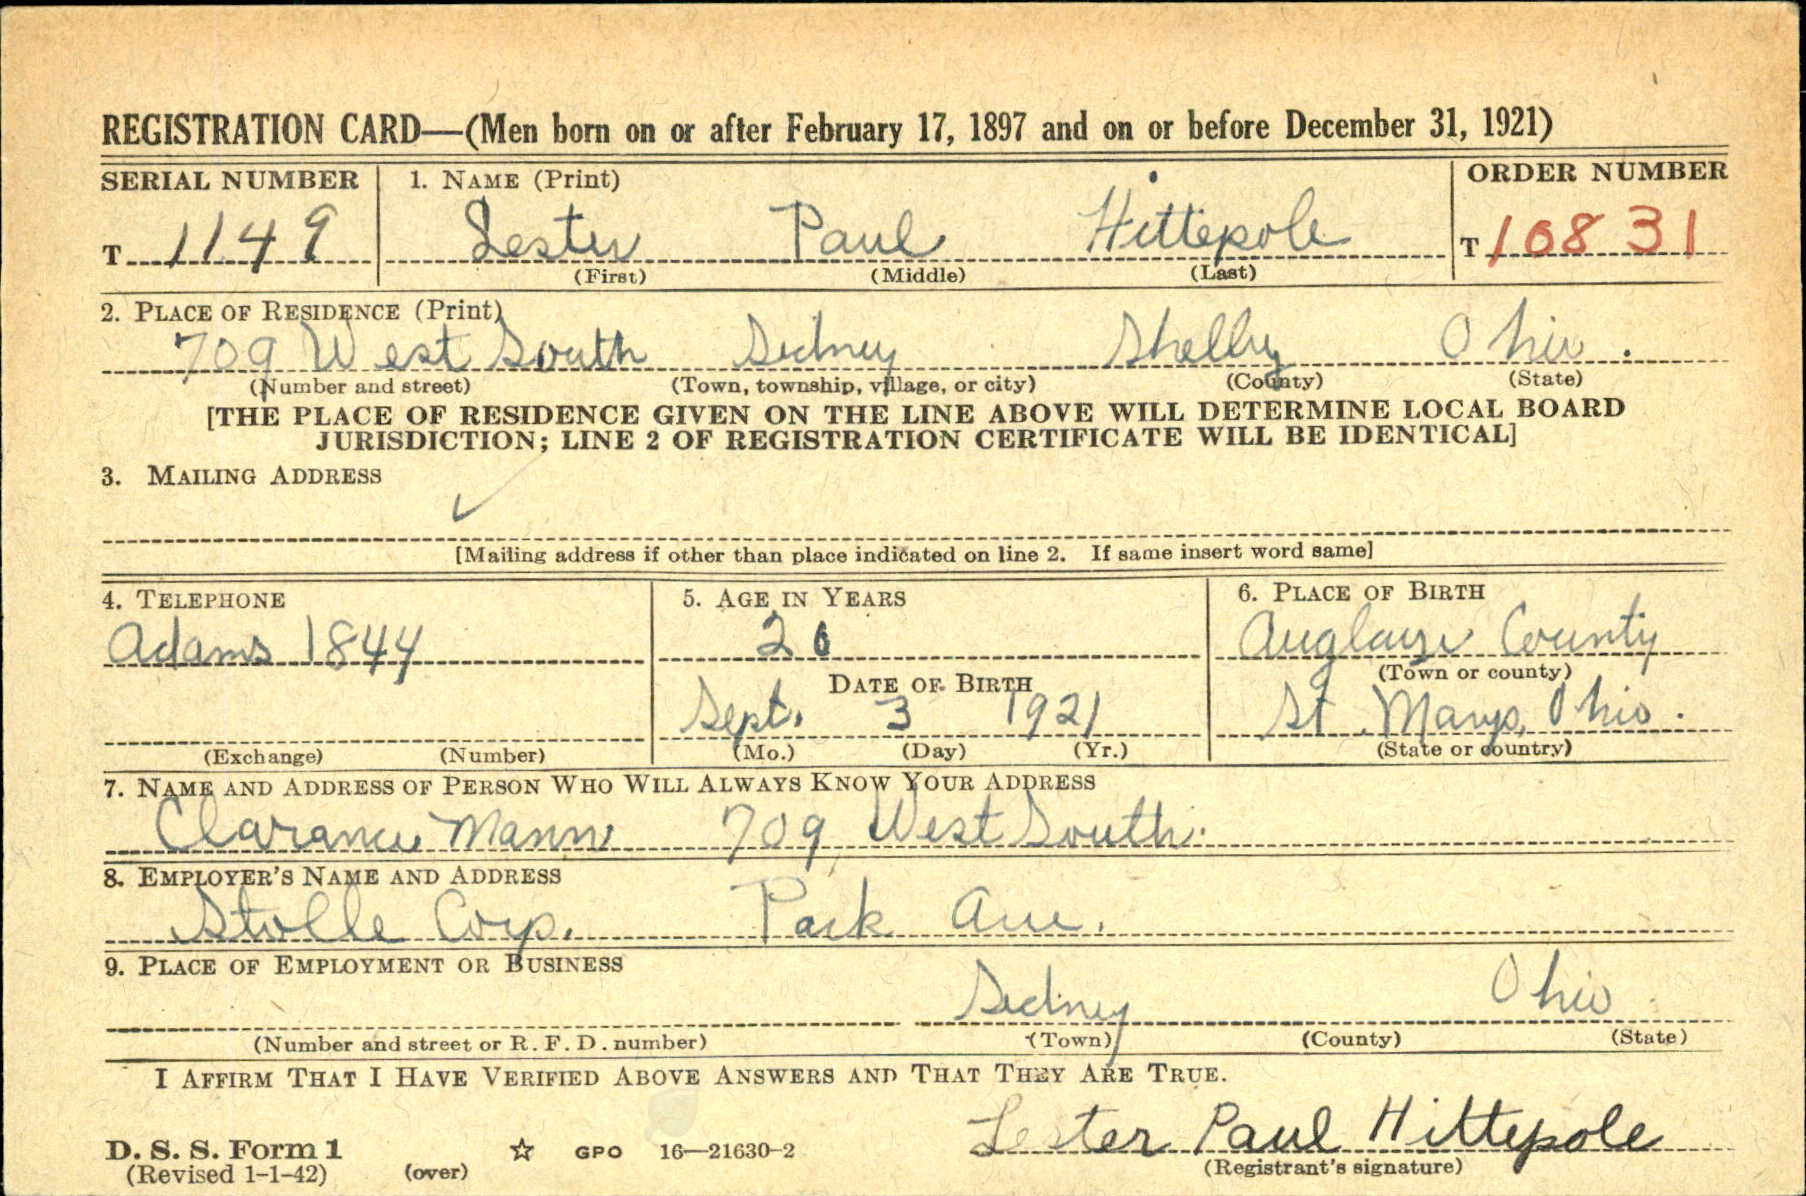 REGISTRATION CARD—(Men born on or after February 17, 1897 and on or before December 31, 1921)
SERIAL NUMBER 1. NAME (Print) ORDER NUMBER
T 1149 Lester Paul Hittepole T 10831
(First) (Middle) (Last)
2. PLACE OF RESIDENCE (Print)
709 West South Sidney Shelby Ohio.
(Number and street) (Town, township, village, or city) (County) (State)
[THE PLACE OF RESIDENCE GIVEN ON THE LINE ABOVE WILL DETERMINE LOCAL BOARD
JURISDICTION; LINE 2 OF REGISTRATION CERTIFICATE WILL BE IDENTICAL]
3. MAILING ADDRESS
[Mailing address if other than place indicated on line 2. If same insert word same]
4. TELEPHONE 5. AGE IN YEARS 6. PLACE OF BIRTH
Adams 1844 20 Auglaize County
(Town or county)
DATE OF BIRTH
Sept. 3 1921 St. Marys, Ohio.
(Exchange) (Number) (Mo.) (Day) (Yr.) (State or country)
7. NAME AND ADDRESS OF PERSON WHO WILL ALWAYS KNOW YOUR ADDRESS
Clarance Mann 709 West South.
8. EMPLOYER'S NAME AND ADDRESS
Stolle Corp. Park Ave.
9. PLACE OF EMPLOYMENT OR BUSINESS
Sidney Ohio
(Number and street or R. F. D. number) (Town) (County) (State)
I AFFIRM THAT I HAVE VERIFIED ABOVE ANSWERS AND THAT THEY ARE TRUE.
Lester Paul Hittepole
D. S. S. Form 1 ☆ GPO 16—21630-2
(Revised 1-1-42) (over) (Registrant's signature)